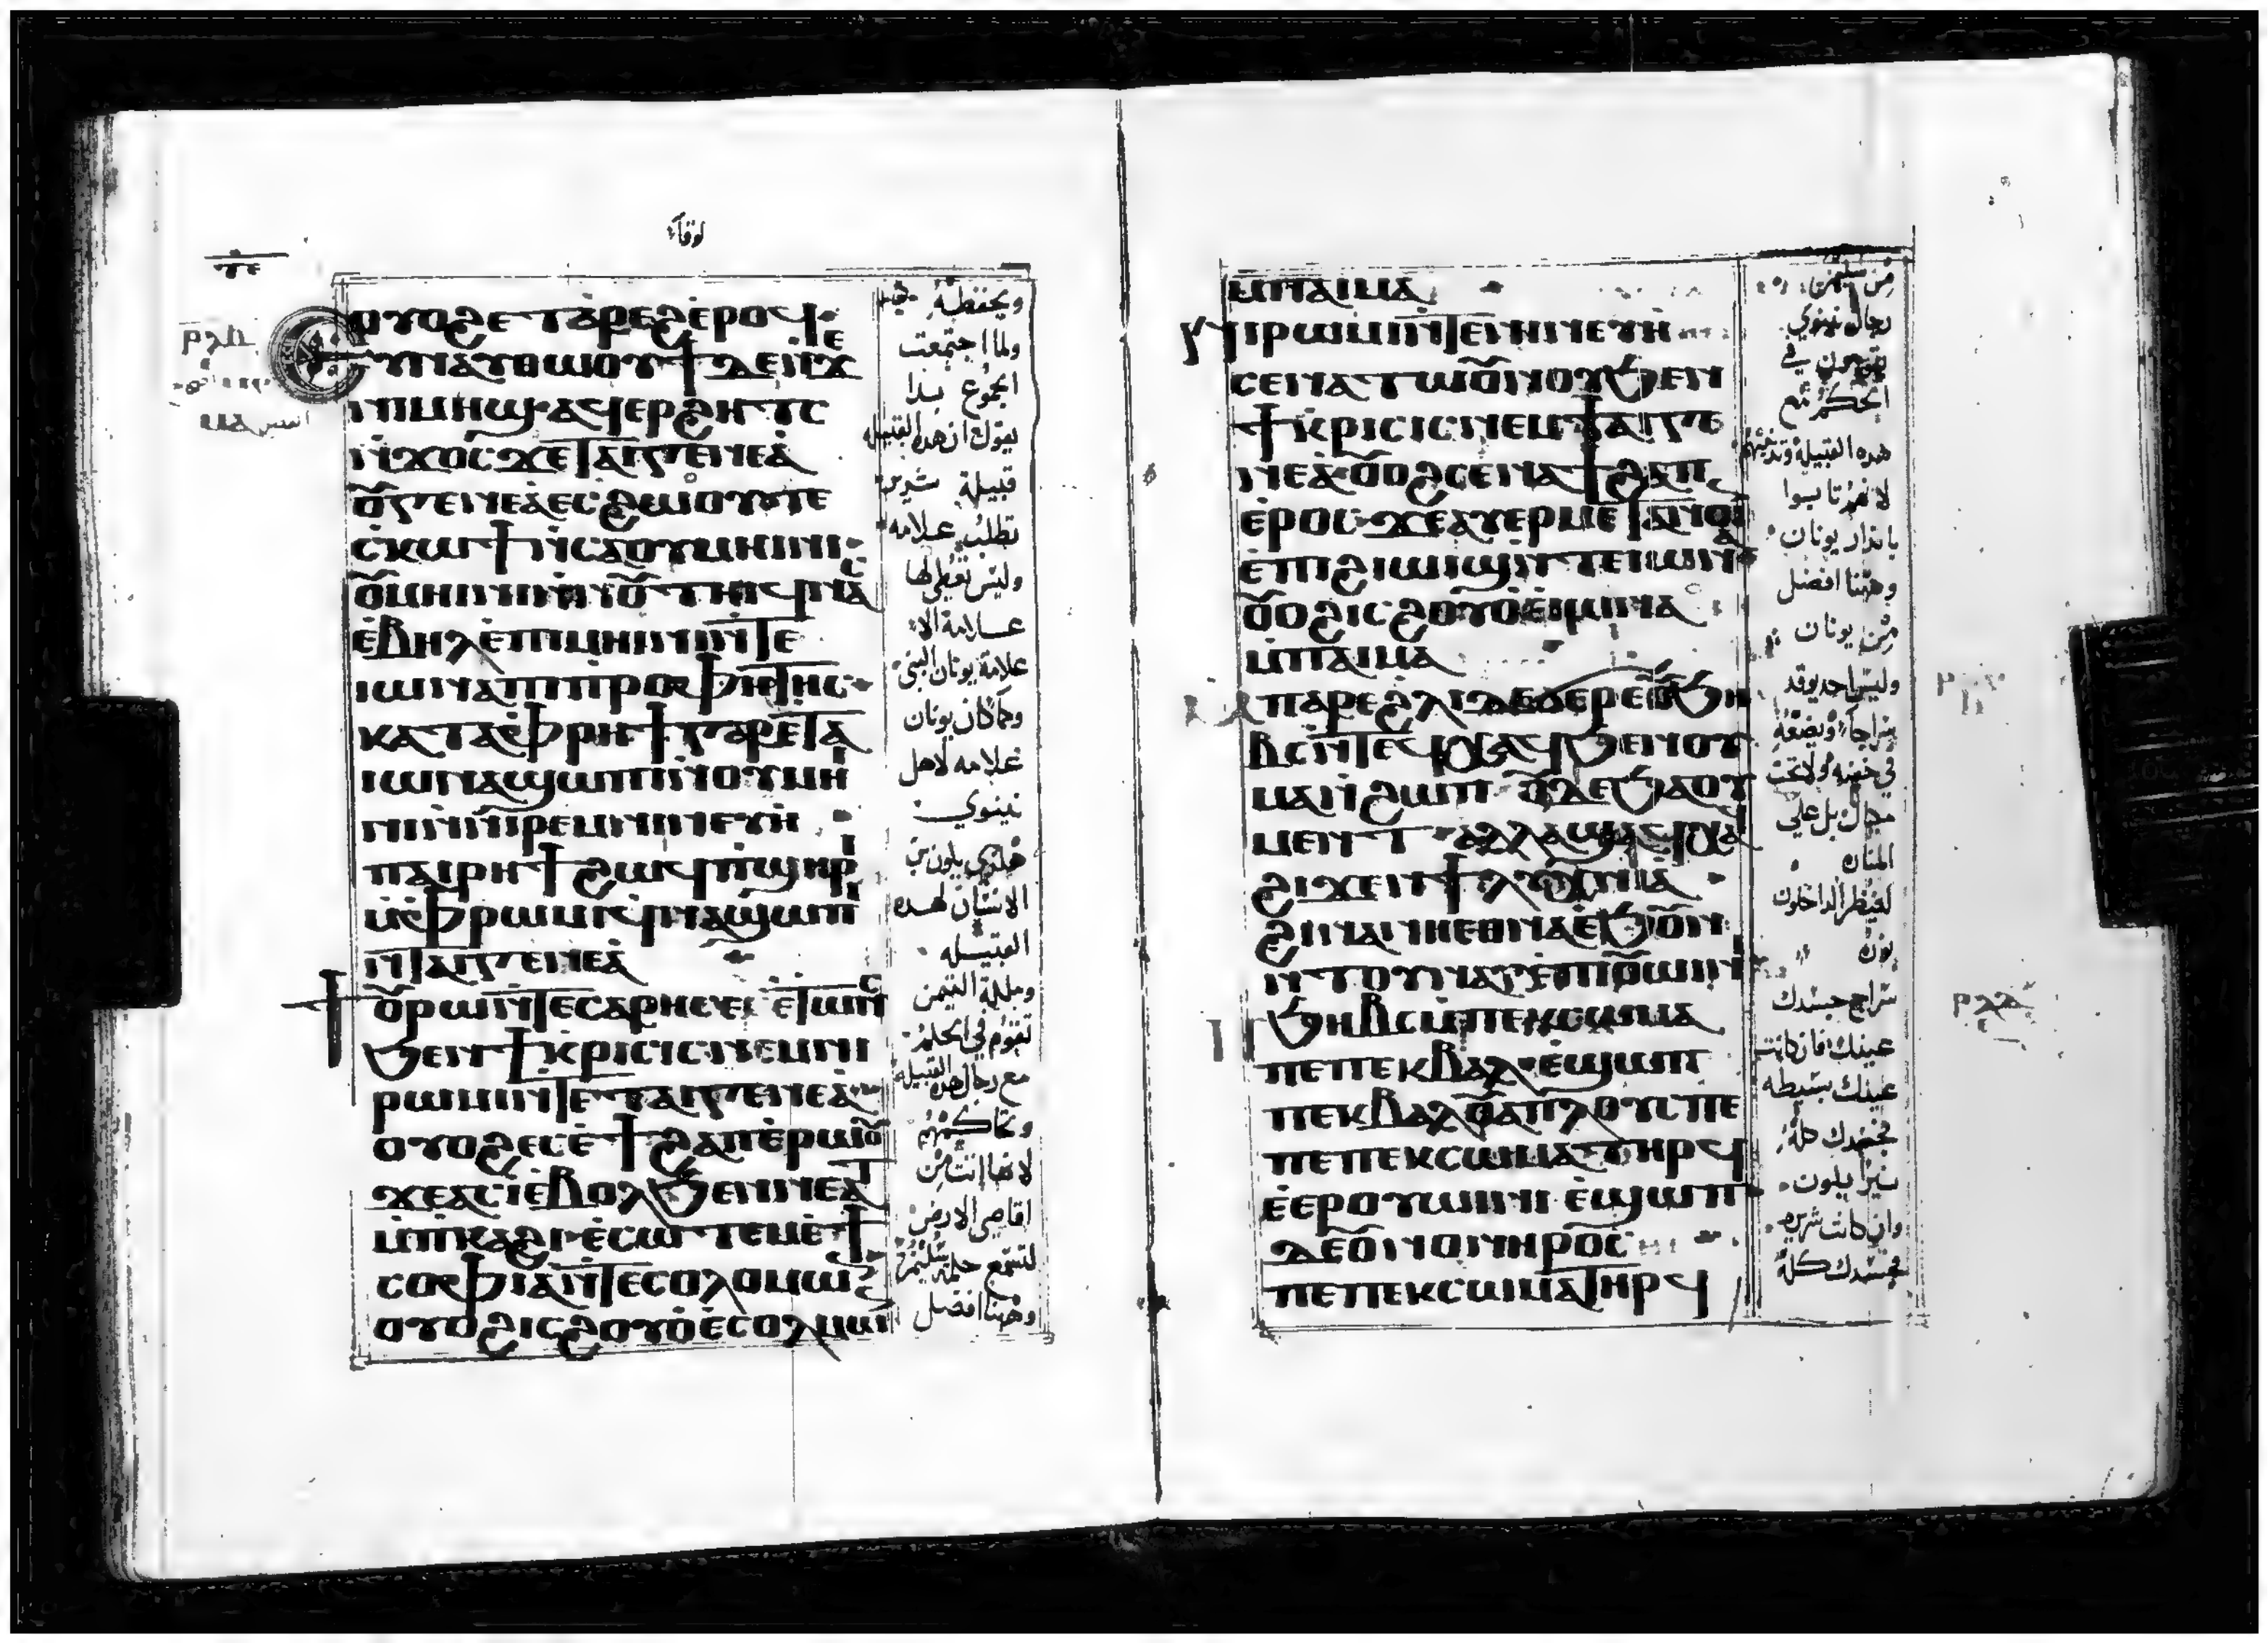 لوقا
ⲟⲩⲟϩⲉⲧⲁⲣⲉϩⲉ̀ⲣⲟϥ
ⲉⲩⲛⲁⲩⲑⲱⲟⲩϯⲇⲉⲛ̀ϫⲉ
ⲛⲓⲙⲏϣ·ⲁϥⲉⲣϩⲏⲧⲥ
ⲛ̀ϫⲟⲥϫⲉⲧⲁⲓⲅⲉⲛⲉⲁ̀
ⲟⲩⲅⲉⲛⲉⲁ̀ⲉⲥϩⲱⲟⲩⲧⲉ
ⲥ̀ⲕⲱϯⲛ̀ⲥⲁⲟⲩⲙⲏⲓⲛⲓ·
ⲟⲩⲙⲏⲓⲛⲓ
ⲉ̀ⲃⲏⲗⲉ̀ⲡⲓⲙⲏⲓⲛⲓⲛ̀ⲧⲉ
ⲓⲱⲛⲁⲡⲓⲡⲣⲟⲫⲏⲧⲏⲥ·
ⲕⲁⲧⲁⲫⲣⲏϯⲅⲁⲣⲉⲧⲁ
ⲓⲱⲛⲁϣⲱⲡⲓⲛ̀ⲟⲩⲙⲏ
ⲓⲛⲓⲛ̀ⲛⲓⲣⲉⲙⲛⲓⲛⲉⲩⲏ̀
ⲡⲁⲓⲣⲏϯϩⲱϥⲡ̀ϣⲏⲣⲓ
ⲙ̀ⲫⲣⲱⲙⲓⲉϥⲛⲁϣⲱⲡⲓ
ⲛ̀ⲧⲁⲓⲅⲉⲛⲉⲁ̀
ϯⲟⲩⲣⲱⲛ̀ⲧⲉⲥⲁⲣⲏⲥⲉⲥⲉ̀ⲧⲱⲛⲥ
ϧⲉⲛϯⲕⲣⲓⲥⲓⲥⲛⲉⲙⲛⲓ
ⲣⲱⲙⲓⲛ̀ⲧⲉⲧⲁⲓⲅⲉⲛⲉⲁ̀
ⲟⲩⲟϩⲉⲥⲉ̀ϯϩⲁⲡⲉ̀ⲣⲱⲟⲩ
ϫⲉⲁⲥⲓ̀ⲉ̀ⲃⲟⲗϧⲉⲛⲛⲉⲁⲧ
ⲙ̀ⲡ̀ⲕⲁϩⲓ·ⲉ̀ⲥⲱⲧⲉⲙⲉ̀ϯ
ⲥⲟⲫⲓⲁⲛ̀ⲧⲉⲥⲟⲗⲟⲙⲱⲛ
ⲟⲩⲟϩⲓⲥϩⲟⲩⲟ̀ⲉ̀ⲥⲟⲗⲙⲱⲛ
ويحفظه
ولما اجتمعت
الجموع بدا
يقول ان هذه القبيله
قبيلة شريره
تطلب علامه
وليس تعطى لها
علامة الا
علامة يونان النبي
وكما كان يونان
علامه لاهل
نينوي
هكذي يكون بن
الانسان لهده
القبيله
وملكة التيمن
تقوم في الحكم
مع رجال هده القبيله
وتحاكمهم
لانها اتت من
اقاصي الارض
لتسمع حكمة سليمن
وههنا افضل
ⲙ̀ⲡⲁⲓⲙⲁ
ⲛⲓⲣⲱⲙⲓⲛ̀ⲧⲉⲛⲓⲛⲉⲩⲏ̀
ⲥⲉⲛⲁⲧⲱⲟⲩⲛⲟⲩϧⲉⲛ
ϯⲕⲣⲓⲥⲓⲥⲛⲉⲙⲧⲁⲓⲅⲉ
ⲛⲉⲁ̀·ⲟⲩⲟϩⲥⲉⲛⲁϯϩⲁⲡ
ⲉ̀ⲣⲟⲥ·ϫⲉⲁⲩⲉⲣⲙⲉⲧⲁⲛⲟⲓⲛ
ⲉ̀ⲡⲓϩⲓⲱⲓϣⲛ̀ⲧⲉⲓⲱⲛⲁ
ⲟⲩⲟϩⲓⲥϩⲟⲩⲟ̀ⲉ̀ⲓⲱⲛⲁ
ⲙ̀ⲡⲁⲓⲙⲁ
ⲙ̀ⲡⲁⲣⲉϩⲗⲓⲇⲉϭⲉⲣⲉⲟⲩϧⲏ
ⲃⲥⲛ̀ⲧⲉϥⲭⲁϥϧⲉⲛⲟⲩ
ⲙⲁⲛ̀ϩⲱⲡ ⲟⲩⲇⲉϧⲁⲟⲩ
ⲙⲉⲛⲧ·ⲁⲗⲗⲁϣⲁϥⲭⲁϥ
ϩⲓϫⲉⲛϯⲗⲩⲭⲛⲓⲁ
ϩⲓⲛⲁⲛⲏⲉⲑⲛⲁⲉ̀ϧⲟⲩⲛ
ⲛ̀ⲧⲟⲩⲛⲁⲩⲉ̀ⲡⲓⲟⲩⲱⲓⲛⲓ
ⲡϧⲏⲃⲥⲙ̀ⲡⲉⲕⲥⲱⲙⲁ
ⲡⲉⲡⲉⲕⲃⲁⲗ·ⲉ̀ϣⲱⲡ
ⲡⲉⲕⲃⲁⲗⲟⲩⲁⲡⲗⲟⲩⲥⲡⲉ
ⲡⲉⲡⲉⲕⲥⲱⲙⲁⲧⲏⲣϥ
ⲉϥⲉ̀ⲉⲣⲟⲩⲱⲓⲛⲓ·ⲉ̀ϣⲱⲡ
ⲇⲉⲟⲩⲡⲟⲛⲏⲣⲟⲥ
ⲡⲉⲡⲉⲕⲥⲱⲙⲁⲧⲏⲣϥ
من سليمن
رجال نينوي
يقومون في
الحكم مع
هده القبيلة وتدينهم
لانهم تابوا
بانذار يونان
وههنا افضل
من يونان
وليس احد يوقد
سراجا ويضعه
في خفيه ولا تحت
مكيال بل علي
المناره
لينظر الداخلون
نوره
سراج جسدك
عينك فان كانت
عينك بسيطه
فجسدك كله
نيرا يكون
وان كانت شريره
فجسدك كله